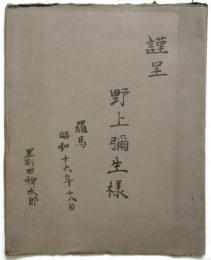 謹呈
野上彌生様
羅馬
昭和十六年 八日
田 太郎